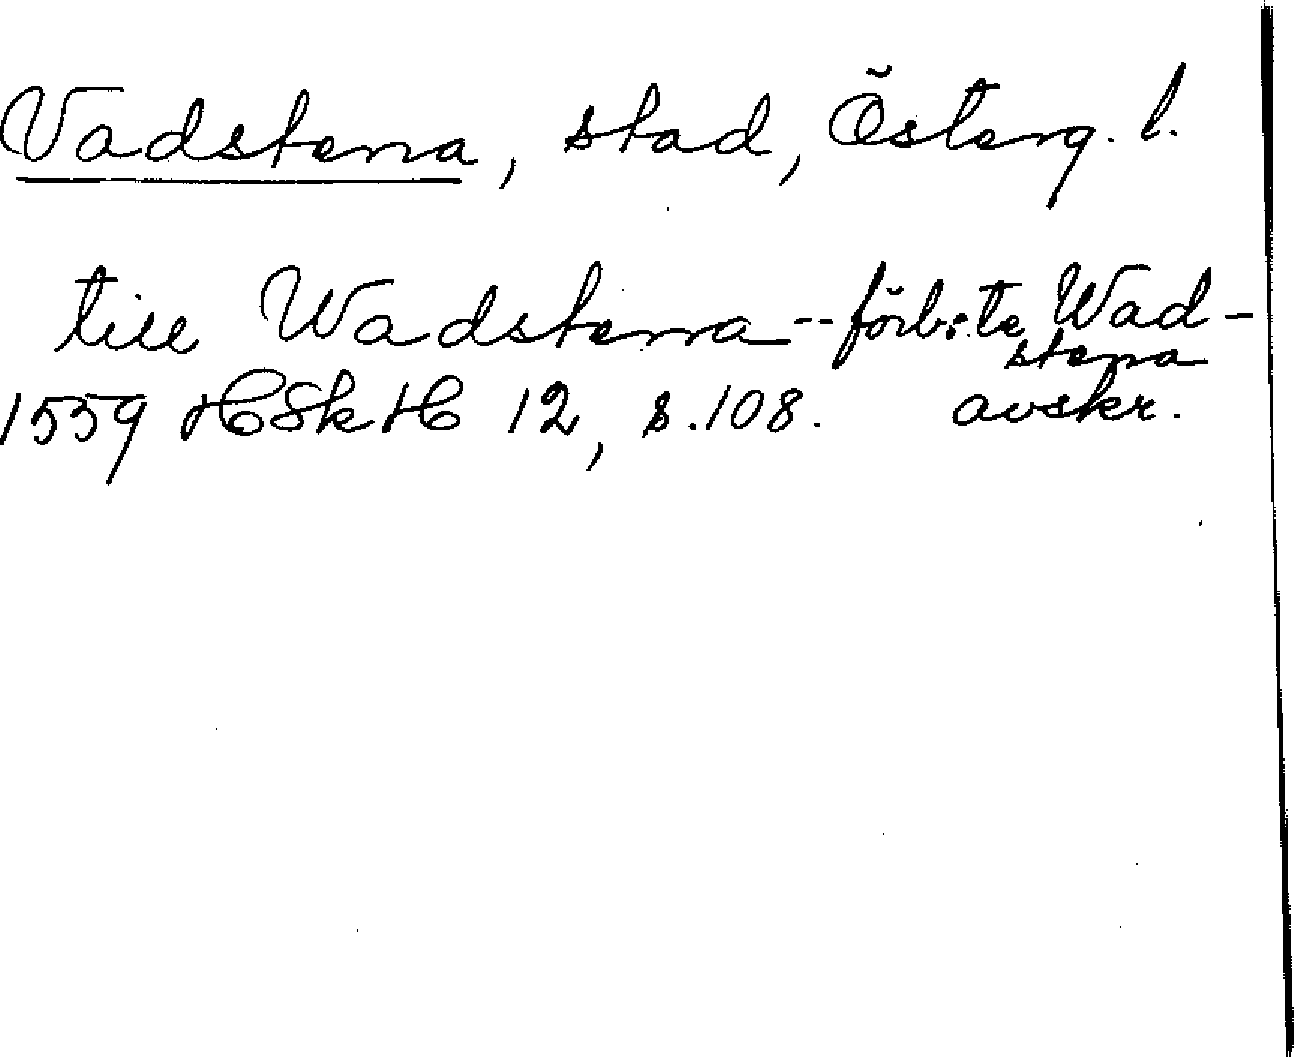 Vadstena, stad, Österg. l.
till Wadstena -- förb:te Wad-
stena
1559 HSkH 12, s. 108. avskr.